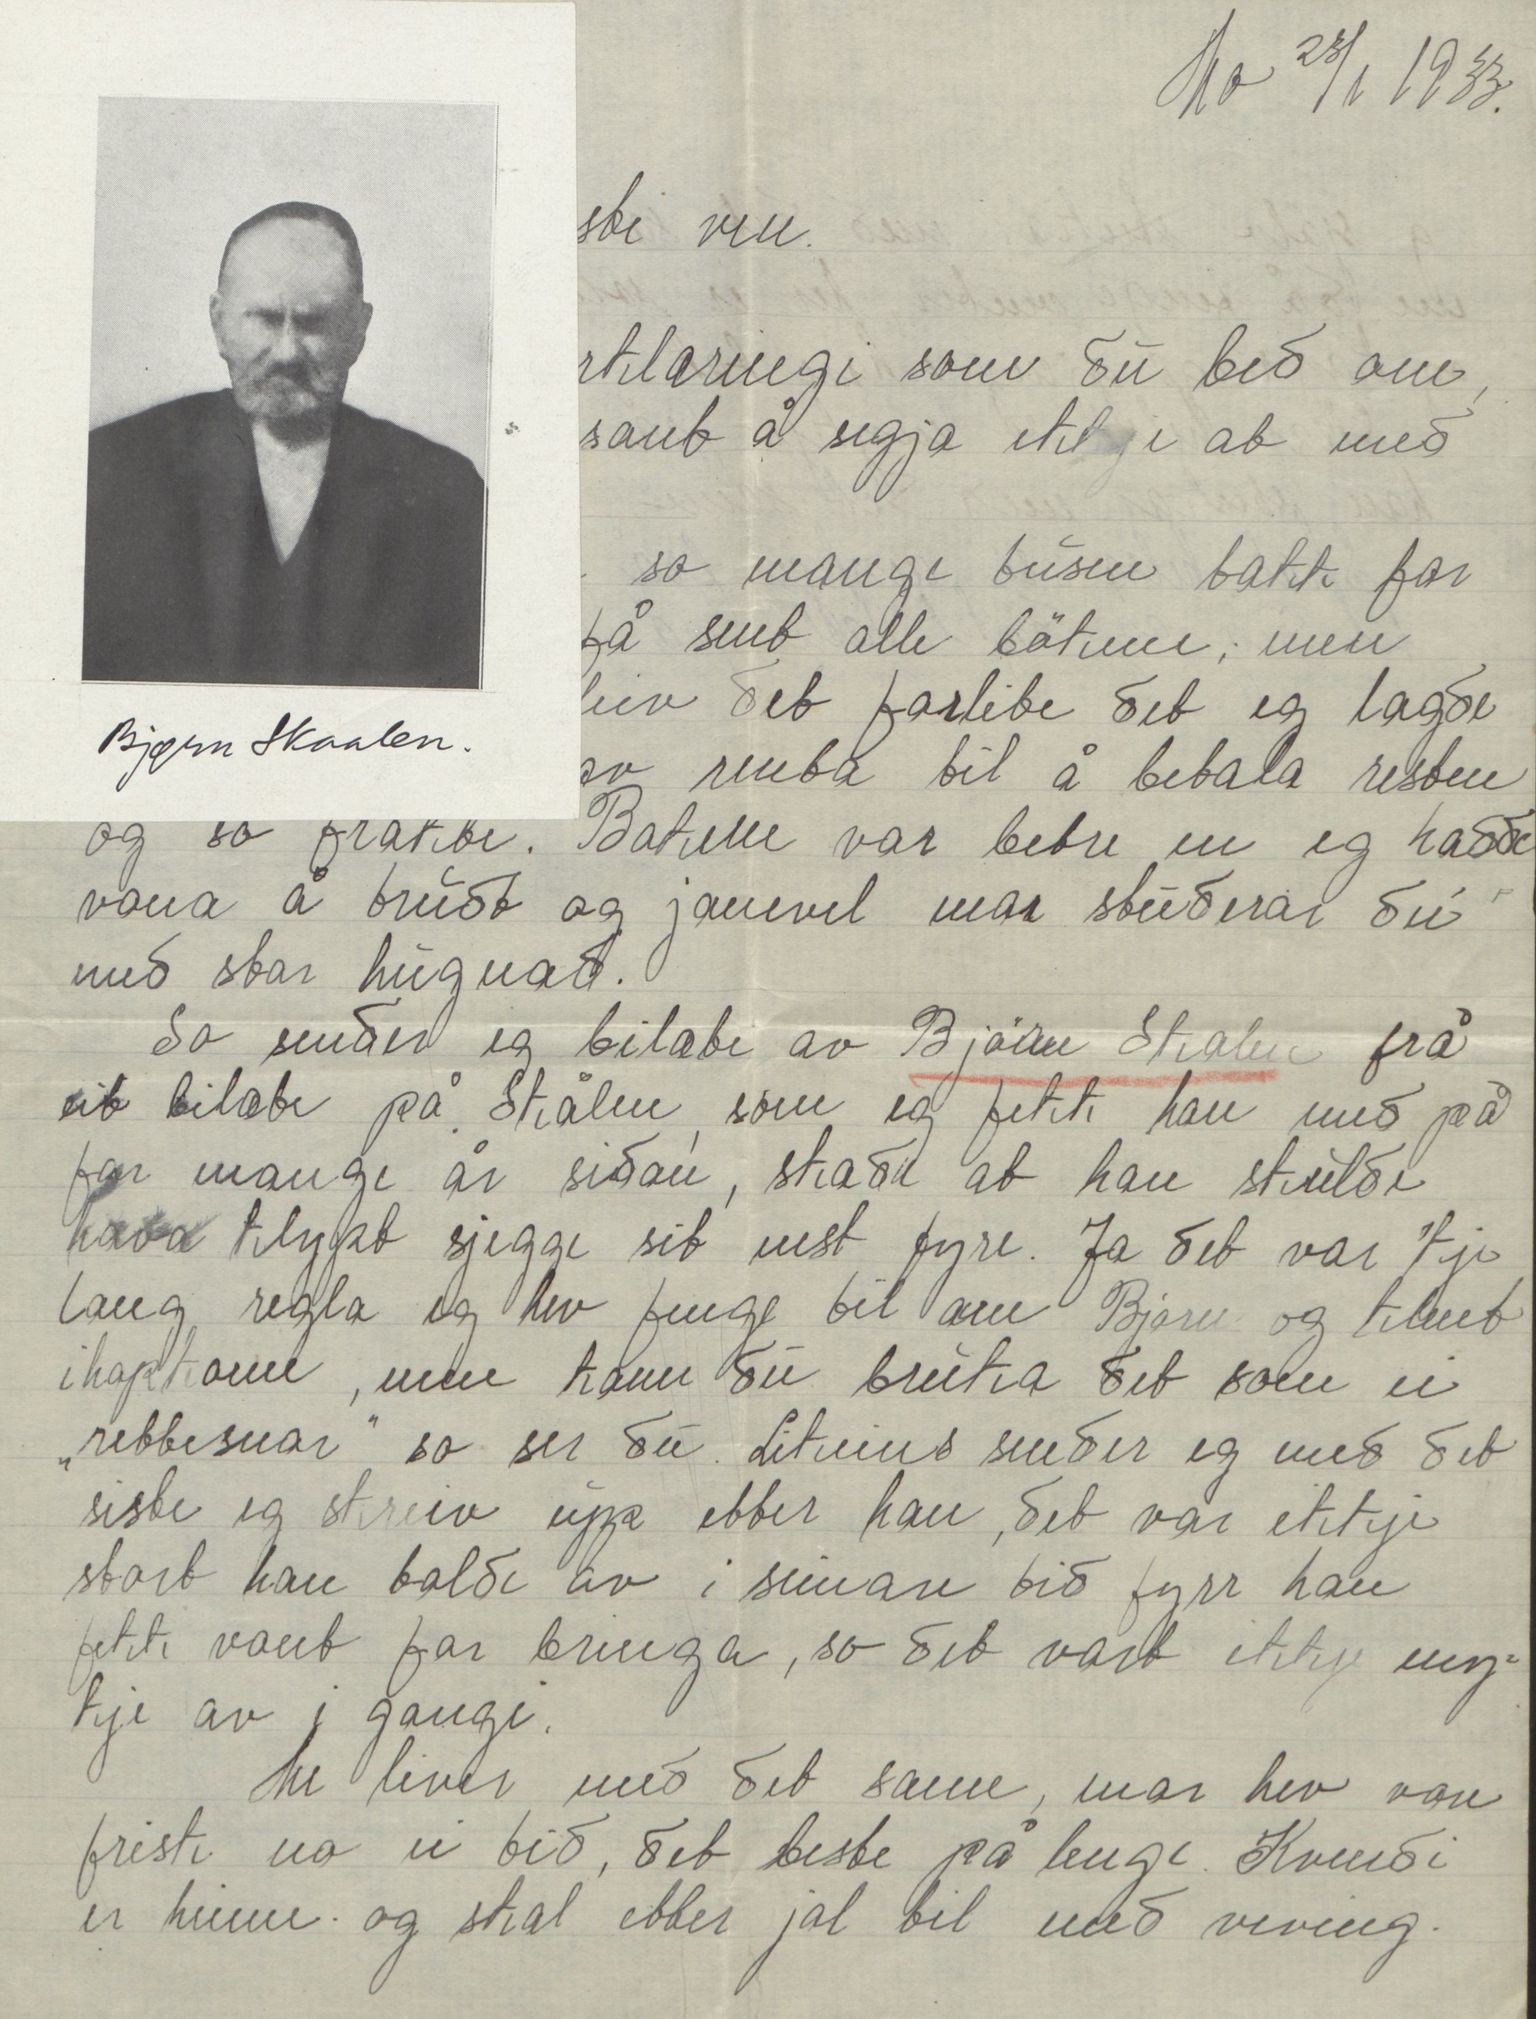 Mo 28/1 1933.
ste ven.
rklaringi som du bed om,
sant å segja ikkje at med
so mange tusen takk for
få sent alle bökene, men
leiv det forlite det eg lagde
av renta til å betala resten
og so frakte. Bökene var betre en eg hadde
vona å trudt og janevel mor studerar du
med stor hugnad.
So sender eg bilæte av Björn Skalen frå
eit bilæte på Skålen, som eg fekk han med på
for mange år sidan, skade at han skulde
hava klypt sjegge sit nest fyre. Ja det var kje
lang regla eg hev funge til om Bjørn og klent
ihopkome, men kann du bruka det som ei
„rettesnor" so ser du. Likeins sender eg med det
siste eg skreiv upp etter han, det var ikkje
stort han tolde av i seinare tid fyrr han
fekk vont for bringa, so det vart ikkje my-
kje av i gongi.
Me liver med det same, mor hev vore
frisk no ei tid, det beste på lenge. Kvendi
er heime og skal etter jol til med veving.
Bjørn Skaalen.